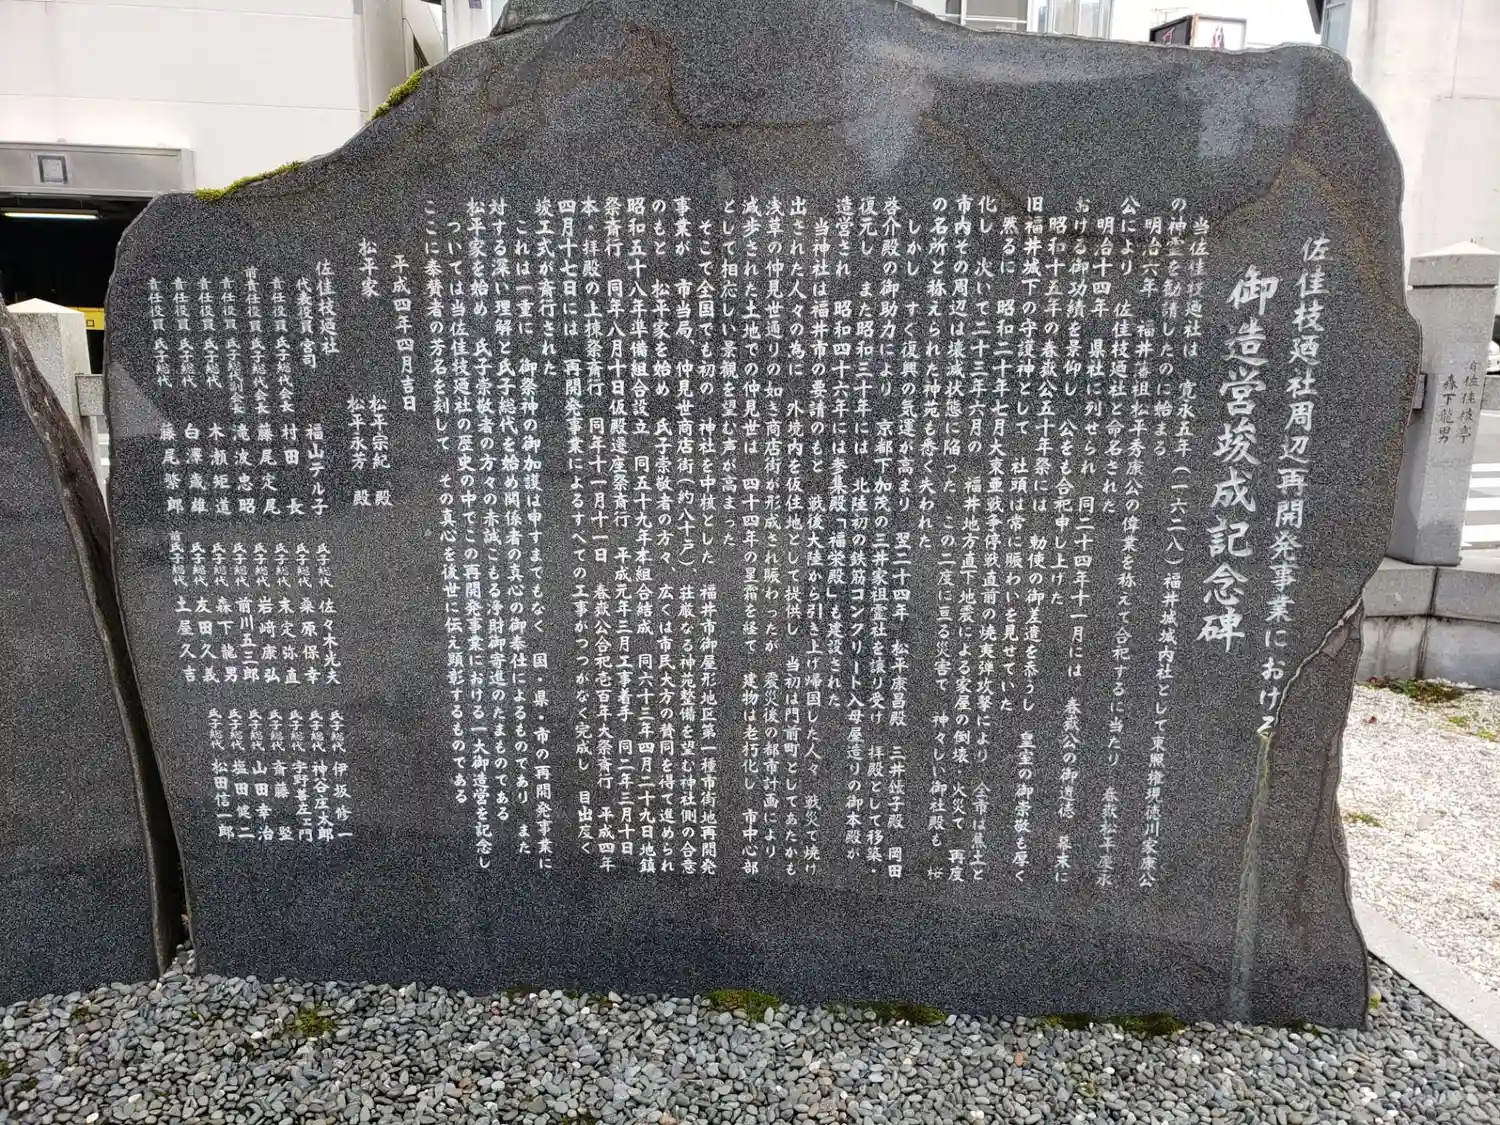 佐佳枝廼社周辺再開発事業における
御造営竣成記念碑
当佐佳枝廼社は 寛永五年(一六二八)福井城城内社として東照権現徳川家康公
の神霊を勧請したのに始まる
明治六年 福井藩祖松平秀康公の偉業を称えて合祀するに当たり 春嶽松平慶永
公により 佐佳枝廼社と命名された
明治十四年 県社に列せられ 同二十四年十一月には 春嶽公の御遺徳 幕末に
おける御功績を景仰し 公をも合祀申し上げた
昭和十五年の春嶽公五十年祭には 勅使の御差遣を忝うし 皇室の御崇敬も厚く
旧福井城下の守護神として 社頭は常に賑わいを見せていた
然るに 昭和二十年七月大東亜戦争停戦直前の焼夷弾攻撃により 全市は焦土と
化し 次いで二十三年六月の 福井地方直下地震による家屋の倒壊・火災で 再度
市内その周辺は壊滅状態に陥った この二度に亘る災害で 神々しい御社殿も 桜
の名所と称えられた神苑も悉く失われた
しかし すぐ復興の気運が高まり 翌二十四年 松平康昌殿 三井鉉子殿 岡田
啓介殿の御助力により 京都下加茂の三井家祖霊社を譲り受け 拝殿として移築・
復元し また昭和三十年には 北陸初の鉄筋コンクリート入母屋造りの御本殿が
造営され 昭和四十六年には参集殿「福栄殿」も建設された
当神社は福井市の要請のもと 戦後大陸から引き上げ帰国した人々 戦災で焼け
出された人々の為に 外境内を仮住地として提供し 当初は門前町としてあたかも
浅草の仲見世通りの如き商店街が形成され賑わったが 震災後の都市計画により
減歩された土地での仲見世は 四十四年の星霜を経て 建物は老朽化し 市中心部
として相応しい景観を望む声が高まった
そこで全国でも初の 神社を中核とした 福井市御屋形地区第一種市街地再開発
事業が 市当局、仲見世商店街(約八十戸)、荘厳なる神苑整備を望む神社側の合意
のもと 松平家を始め 氏子崇敬者の方々、広くは市民大方の賛同を得て進められ
昭和五十八年準備組合設立 同五十九年本組合結成 同六十三年四月二十九日地鎮
祭斎行 同年八月十日仮殿遷座祭斎行 平成元年三月工事着手 同二年三月十日
本・拝殿の上棟祭斎行 同年十一月十一日 春嶽公合祀壱百年大祭斎行 平成四年
四月十七日には 再開発事業によるすべての工事がつつがなく完成し 目出度く
竣工式が斎行された
これは一重に 御祭神の御加護は申すまでもなく 国・県・市の再開発事業に
対する深い理解と氏子総代を始め関係者の真心の御奉仕によるものであり また
松平家を始め 氏子崇敬者の方々の赤誠こもる浄財御寄進のたまものである
ついては当佐佳枝廼社の歴史の中でこの再開発事業における一大御造営を記念し
ここに奉賛者の芳名を刻して その真心を後世に伝え顕彰するものである
平成四年四月吉日
松平家 松平宗紀 殿
松平永芳 殿
佐佳枝廼社
代表役員 宮司 福山テル子
責任役員 氏子総代会長 村田 長
前責任役員 氏子総代会長 藤尾定尾
責任役員 氏子総代副会長 滝波忠昭
責任役員 氏子総代 木瀬矩道
責任役員 氏子総代 白澤歳雄
責任役員 氏子総代 藤尾警郎
氏子総代 佐々木光夫
氏子総代 桑原保幸
氏子総代 末定弥直
氏子総代 岩崎康弘
氏子総代 前川五三郎
氏子総代 森下龍男
氏子総代 友田久義
前氏子総代 土屋久吉
氏子総代 伊坂修一
氏子総代 神谷庄太郎
氏子総代 宇野善左ェ門
氏子総代 斎藤 堅
氏子総代 山田幸治
氏子総代 塩田健二
氏子総代 松田信一郎
森下龍男